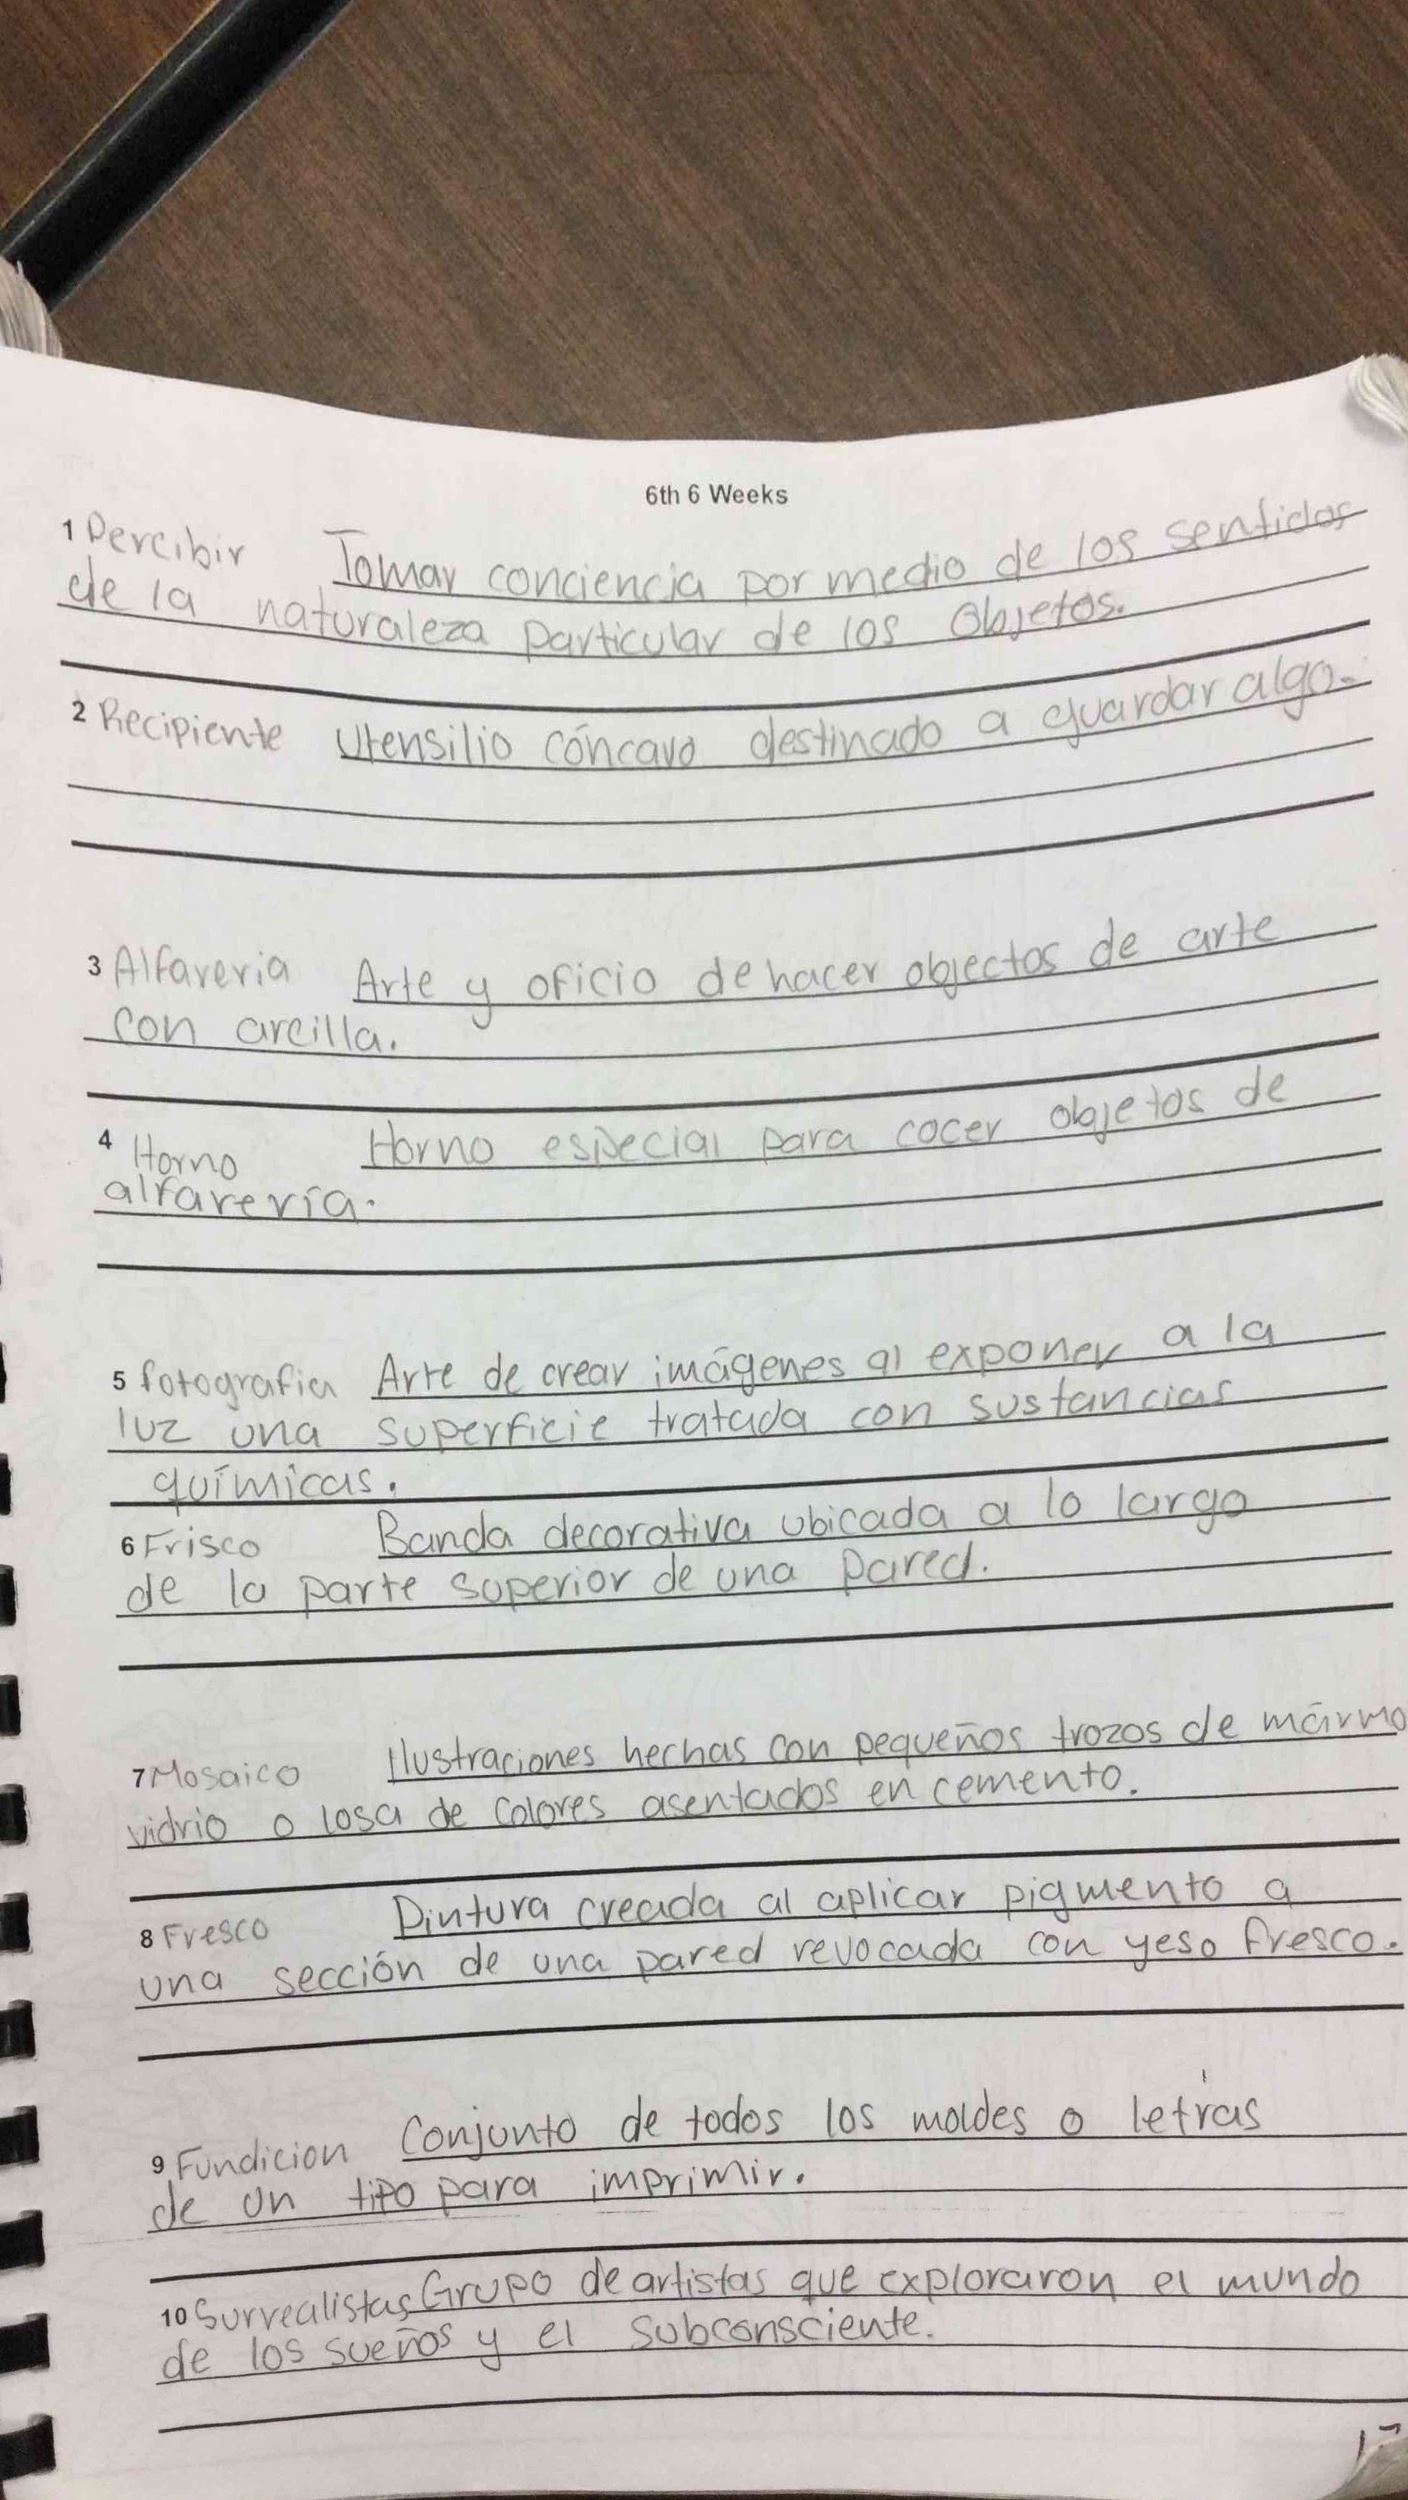 6th 6 Weeks
1 Percibir Tomar conciencia por medio de los sentidos
de la naturaleza particular de los objetos.
2 Recipiente Utensilio cóncavo destinado a guardar algo.
3 Alfareria Arte y oficio de hacer objectos de arte
con arcilla.
4 Horno Horno especial para cocer objetos de
alfarería.
5 fotografia Arte de crear imágenes al exponer a la
luz una superficie tratada con sustancias
químicas.
6 Frisco Banda decorativa ubicada a lo largo
de la parte superior de una pared.
7 Mosaico Ilustraciones hechas con pequeños trozos de mármo
vidrio o losa de colores asentados en cemento.
8 Fresco Pintura creada al aplicar pigmento a
una sección de una pared revocada con yeso fresco.
9 Fundicion Conjunto de todos los moldes o letras
de un tipo para imprimir.
10 Surrealistas Grupo de artistas que exploraron el mundo
de los sueños y el subconsciente.